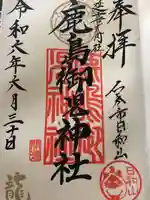 奉拝
石巻市日和山
鹿島御児神社
令和六年六月三十日
日和山
龍